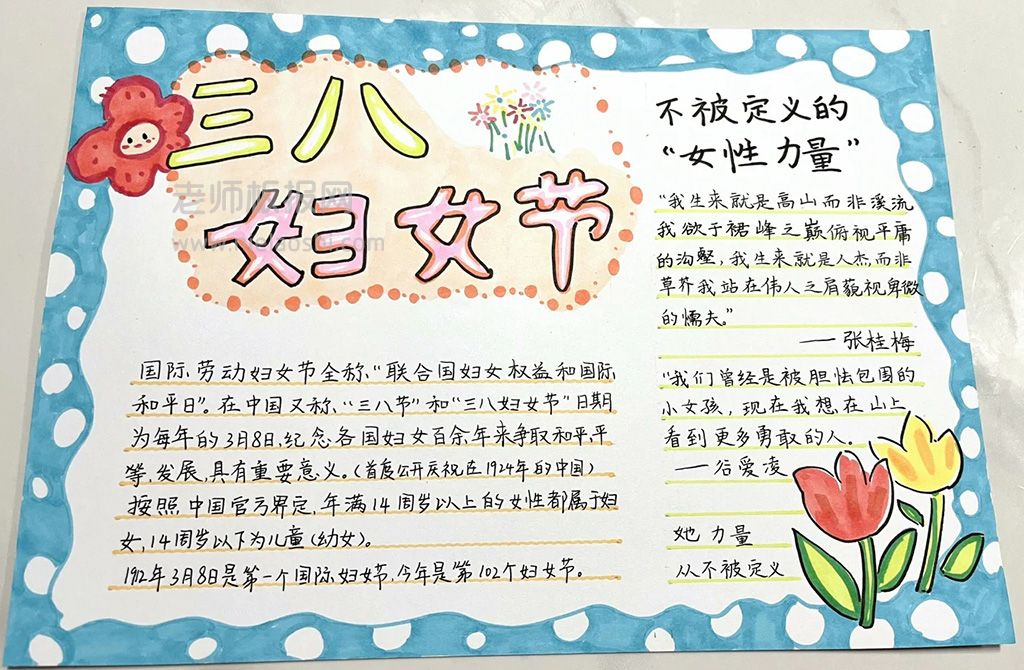 三八
妇女节
老师板报网
不被定义的
“女性力量”
“我生来就是高山而非溪流
我欲于裙峰之巅俯视平庸
的沟壑，我生来就是人杰而非
草芥我站在伟人之肩藐视卑微
的懦夫。”
——张桂梅
“我们曾经是被胆怯包围的
小女孩，现在我想在山上
看到更多勇敢的人。
——谷爱凌
她力量
从不被定义
国际劳动妇女节全称，“联合国妇女权益和国际
和平日”。在中国又称，“三八节”和“三八妇女节”日期
为每年的3月8日，纪念各国妇女百余年来争取和平，平
等，发展，具有重要意义。（首度公开庆祝在1924年的中国）
按照中国官方界定，年满14周岁以上的女性都属于妇
女，14周岁以下为儿童（幼女）。
1912年3月8日是第一个国际妇女节，今年是第102个妇女节。